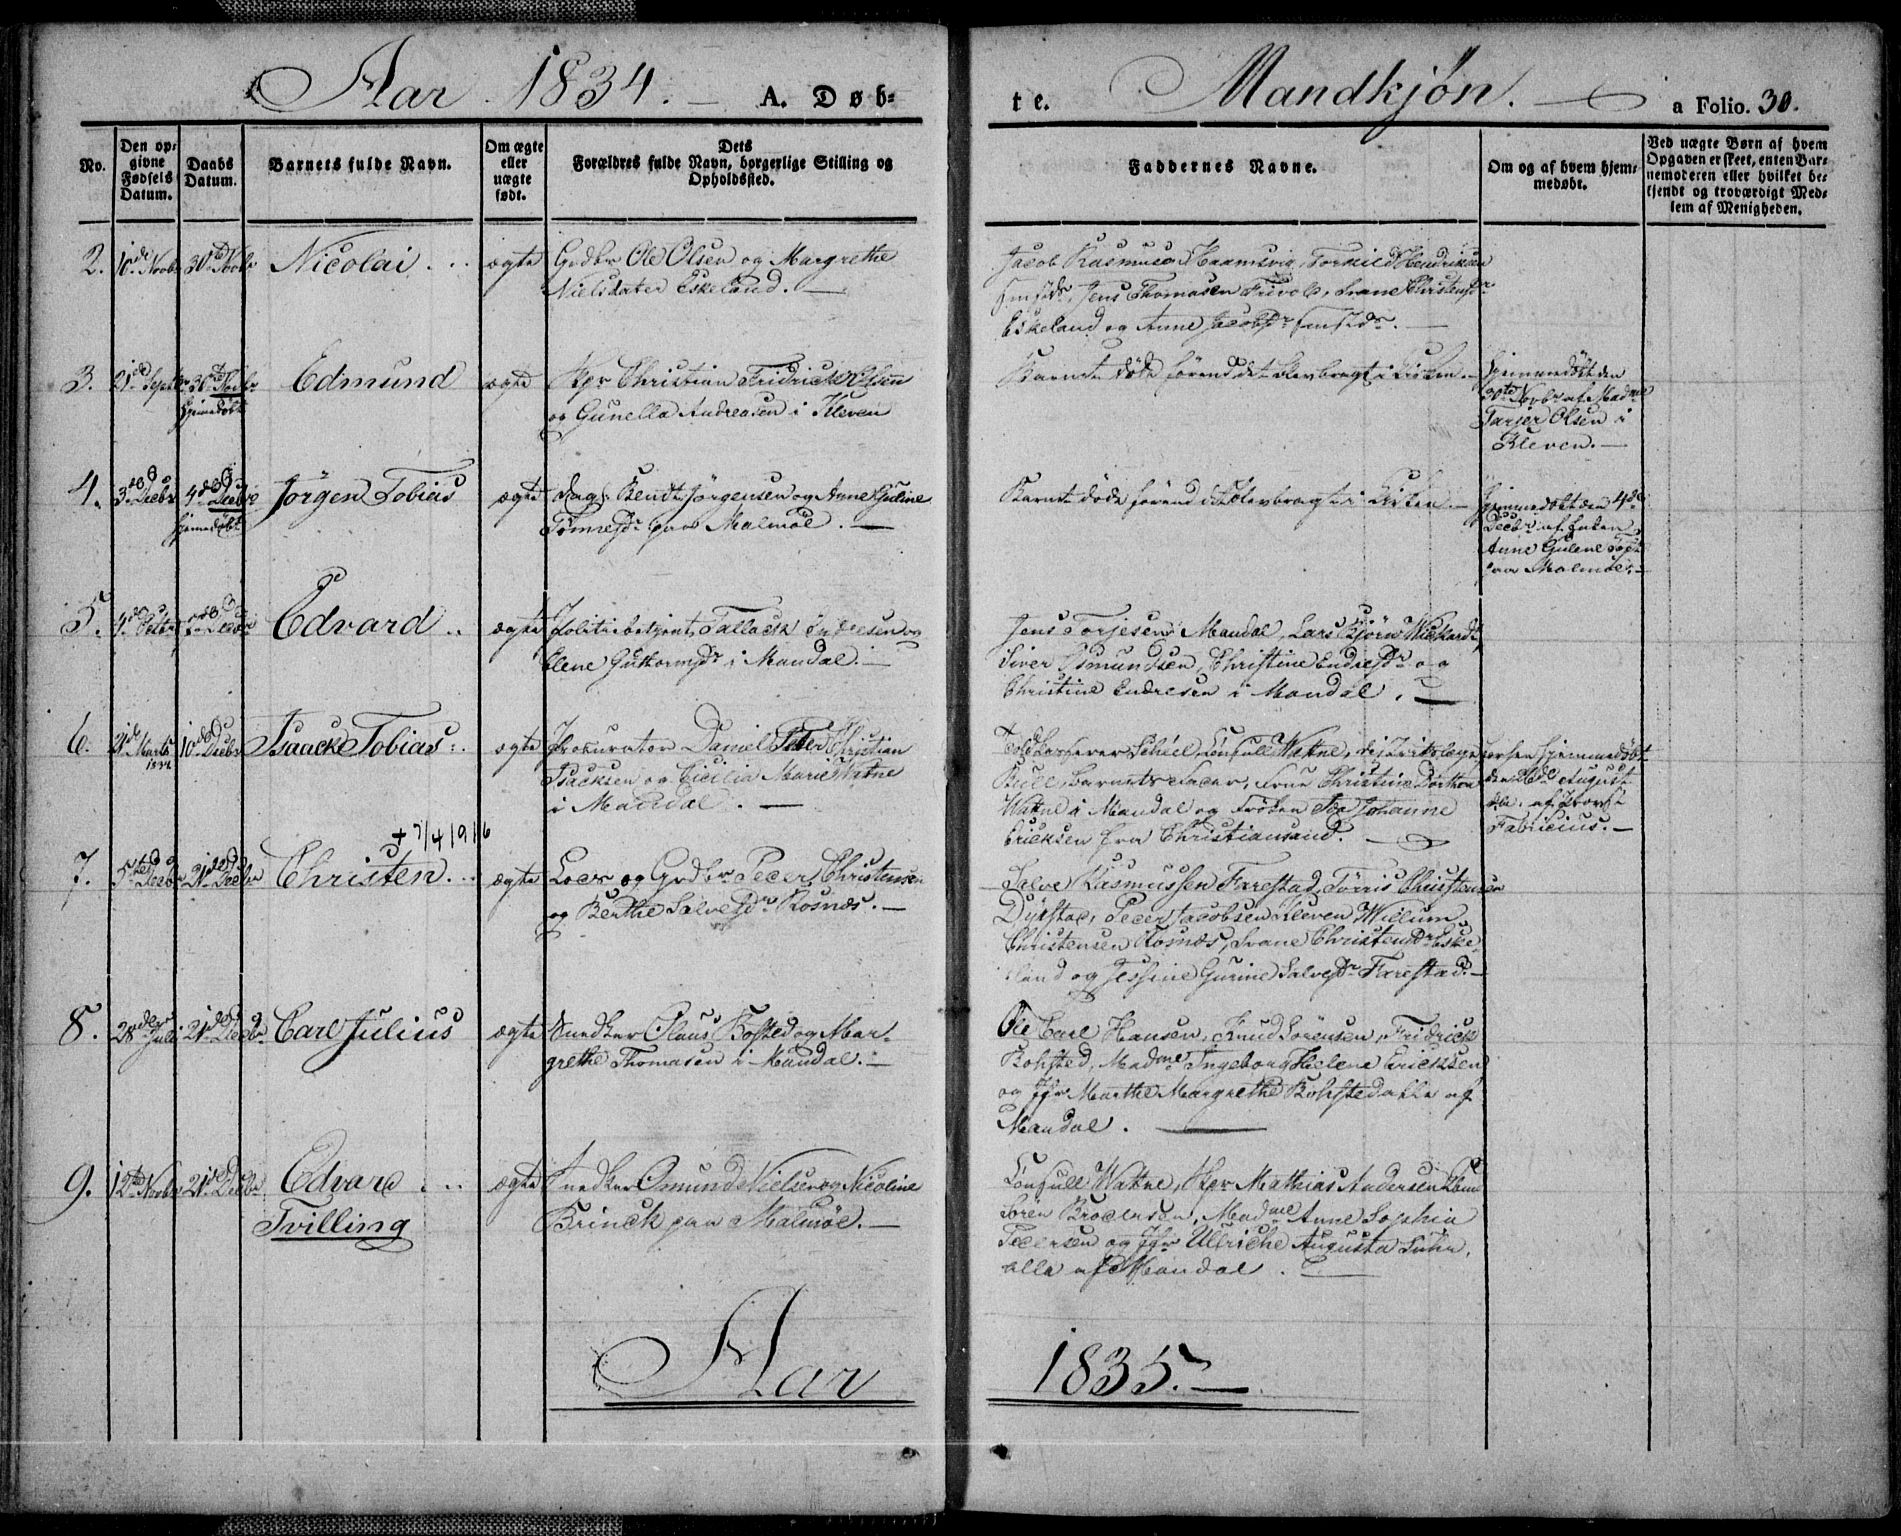 Aar 1834. — A. Døb=
te. Mandkjøn. a Folio. 30.
No.
Den op=
givne
Fødsels
Datum.
Daabs
Datum.
Barnets fulde Navn.
Om ægte
eller
uægte
født.
Dets
Forældres fulde Navn, borgerlige Stilling og
Opholdssted.
Faddernes Navne.
Om og af hvem hjem=
medøbt.
Ved uægte Børn af hvem
Opgaven er skeet, enten Bar=
nemoderen eller hvilket be=
kjendt og troværdigt Med=
lem af Menigheden.
2. 16de Novbr 30te Novbr Nicolai . .. ægte Grdbr Ole Olsen og Margrethe
Nielsdater Eskeland. —
Jacob Rasmusen Haamsvig, Torkild Hendriksen
Jens Thomasen Frivold, Svane Christensdr
Eskeland og Anne Jacobsdr
3. 21de Septbr 30te Novbr
hjemedøbt
Edmund ægte Skpr Christian Fridrick Olsen
og Gunella Andreasen i Kleven
Barnet døde førend det blev bragt i Kirken. —
hjemmedøbt den
30te Novbr af Madme
Tarjer Olsen i
Kleven. —
4. 3de Decbr 4de Decbr
hjemedøbt
Jørgen Tobias ægte Bendt Jørgensen og Anne Guline
Tønnesdr paa Malmøe. —
Barnet døde førend det blev bragt i Kirken. —
hjemmedøbt den 4de
Decbr af Enken
Anne Gulene
paa Malmøe. —
5. Edvard .. ægte Politiebetjent Tallack Endresen og
Elene Guttormsdr i Mandal. —
Jens Torjesen Mandal, Lars Bjørn
Siver Osmundsen, Christine Endresdr og
Christine Endresen i Mandal. —
6. 21de Marts 10de Decbr Isaacke Tobias .. ægte Prokurator Daniel Peter Christian
Isacksen og Cicilia Marie Watne
i Mandal. —
Schéel, Consull Watne, Districtslæge
Bull, Barnets Fader, Frue Christine Dorthea
Watne i Mandal og Frøken Ida Johanne
Ericksen fra Christiansand. —
hjemmedøbt
den 26de August
af Provst
Fabricius. —
+ 7/4 1916
7. 5te Decbr 21de Decbr Christen. .. ægte Lods og Grdbr Peder Christensen
og Berthe Salvesdr Rosnæs. —
Salve Rasmussen Farestad, Tørris Christensen
Dyrstad, Peder Jacobsen Kleven, Willum
Christensen Rosnæs, Svane Christensdr Eske=
land og Jessine Gurine Salvesdr Farestad. —
8. 28de Juli 21de Decbr Carl Julius ægte Snedker Claus Bohsted og Mar=
grethe Thomasen i Mandal. —
Ole Carl Hansen, Knud Sørensen, Fridrick
Bohsted, Madme Ingeborg Helene Ericksen
og Jfr Marthe Margrethe Bohsted alle af
Mandal. —
9. 12te Novbr 21de Decbr Edvard . .. ægte Snedker Omund Nielsen og Nicoline
Tvilling
Brinck paa Malmøe. —
Consull Watne, Skpr Mathias Andersen
Søren Brodersen, Madme Anne Sophia
Pedersen og Jfr Ullriche Augusta
alle af Mandal. —
Aar 1835. —